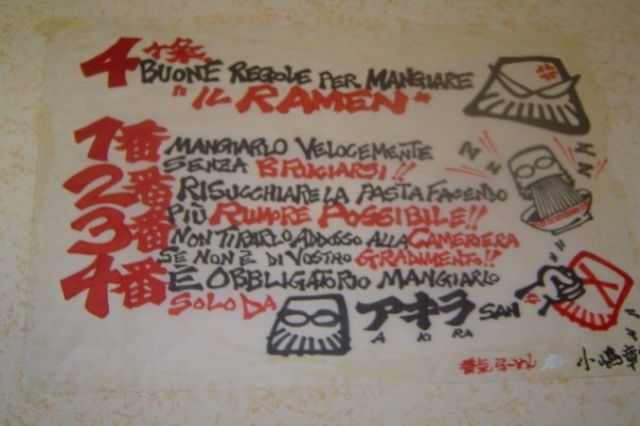 4ヶ条
BUONE REGOLE PER MANGIARE
"IL RAMEN"
1番 MANGIARLO VELOCEMENTE
SENZA BRUCIARSI!!
2番 RISUCCHIARE LA PASTA FACENDO
PIÙ RUMORE POSSIBILE!!
3番 NON TIRARLO ADDOSSO ALLA CAMERIERA
SE NON È DI VOSTRO GRADIMENTO!!
4番 È OBBLIGATORIO MANGIARLO
SOLO DA アキラ SAN
A KI RA
らーめん 小嶋章